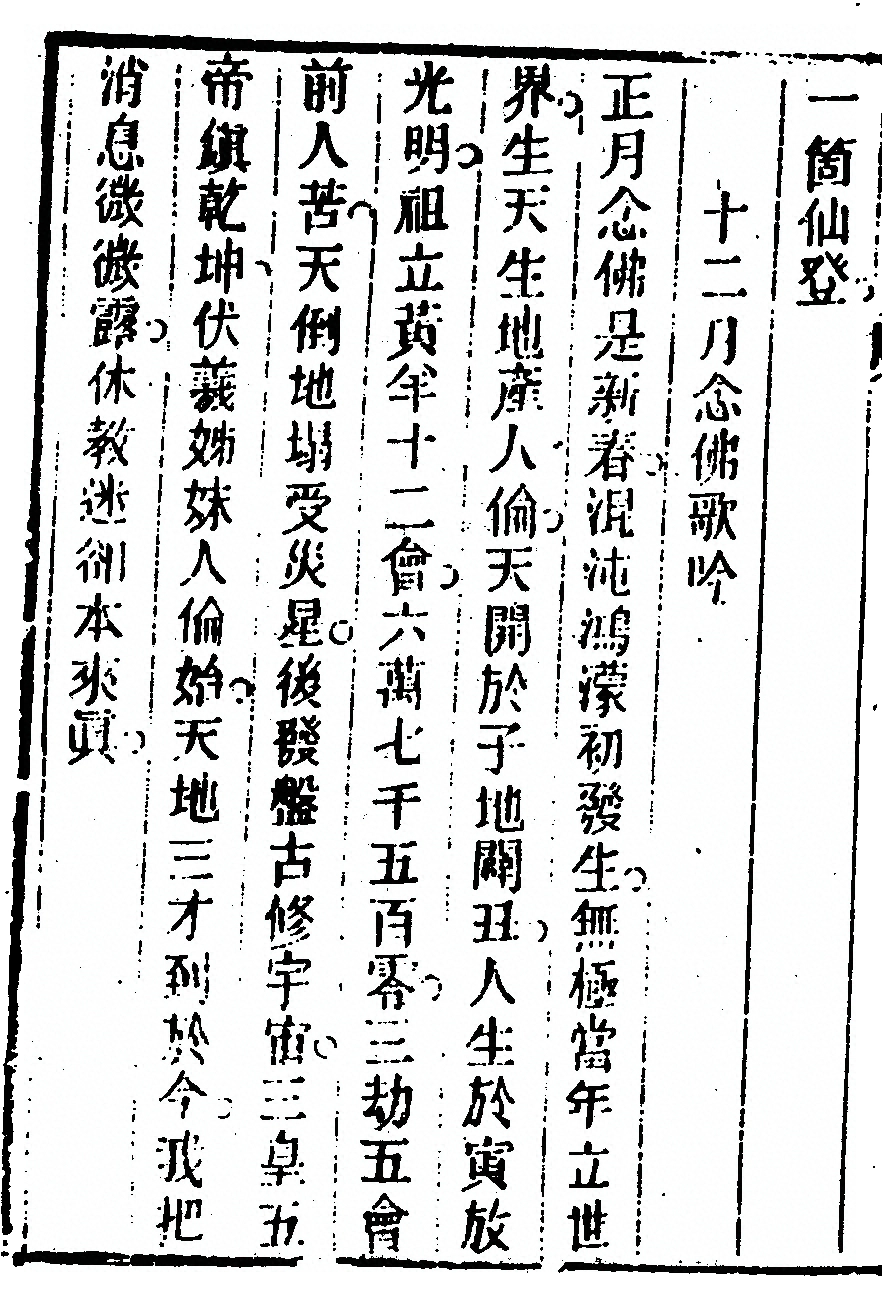 一箇仙登
十二月念佛歌吟
正月念佛是新春混沌鴻濛初發生無極當年立世
界生天生地產人倫天開於子地闢丑人生於寅放
光明祖立黃羊十二會六萬七千五百零三劫五會
前人苦天倒地塌受災星後發盤古修宇宙三皇五
帝縝乾坤伏羲姊妹人倫始天地三才到於今我把
消息微微露休教迷卻本來真